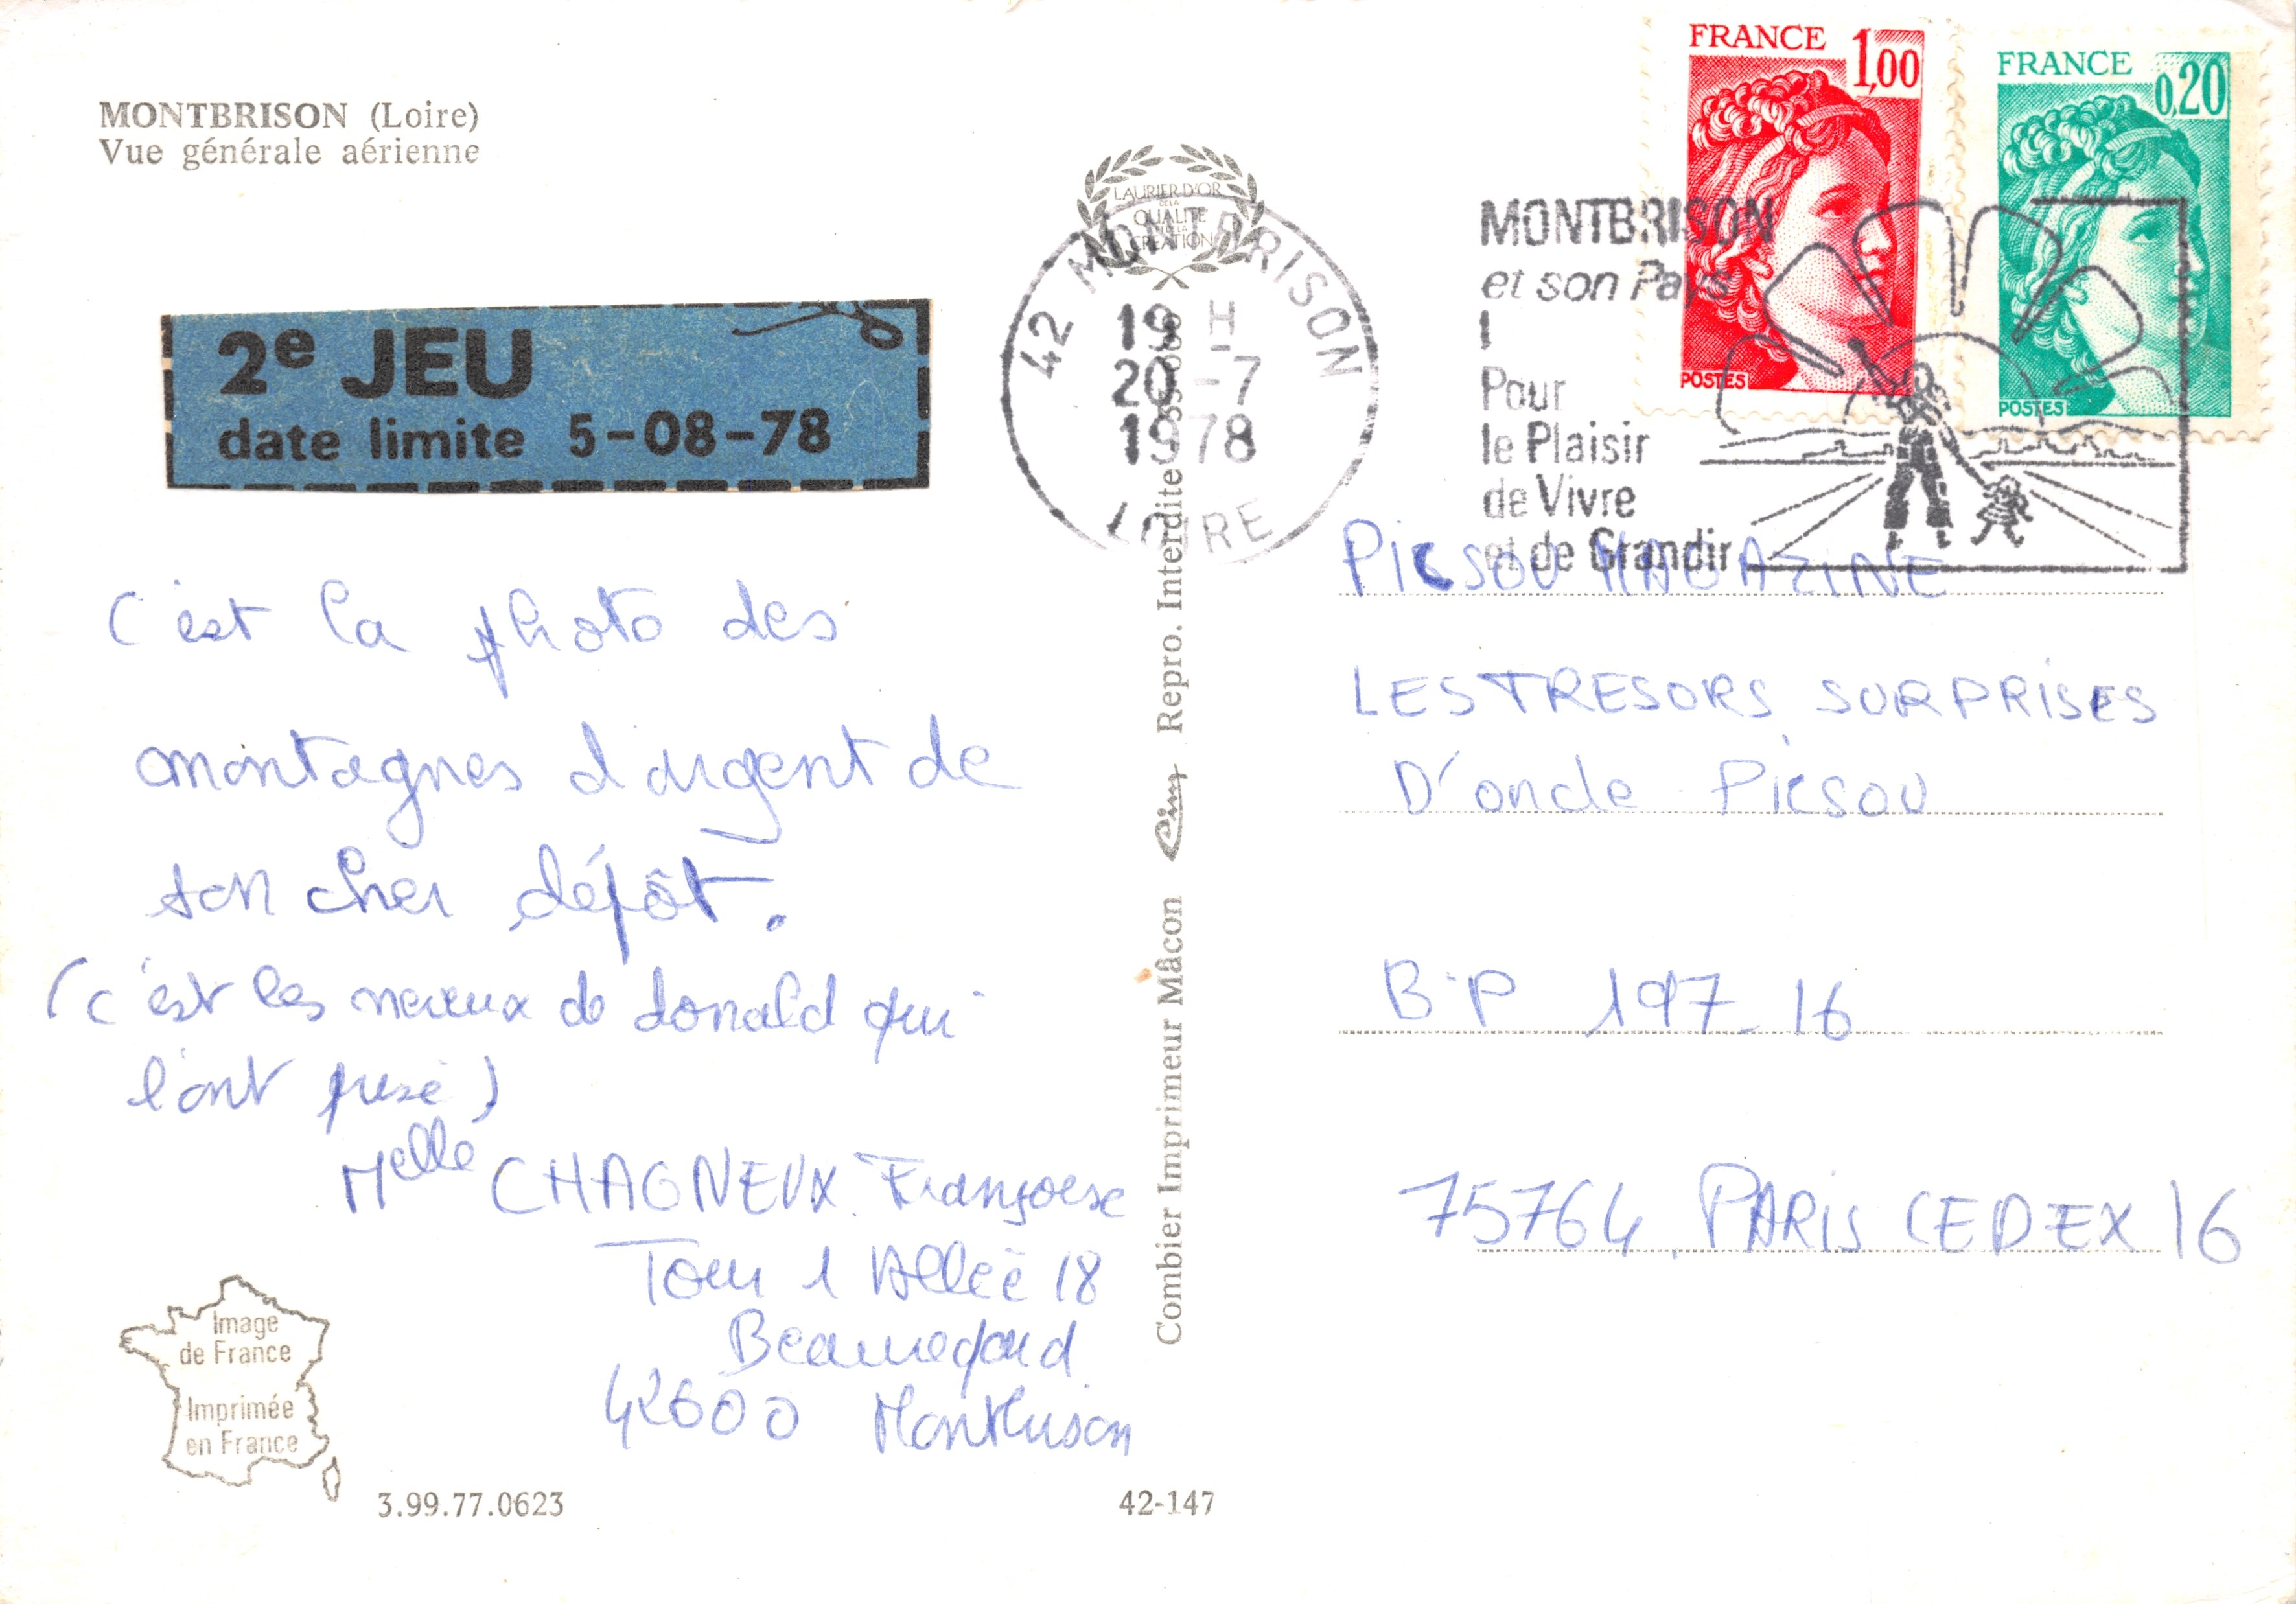 MONTBRISON (Loire)
Vue générale aérienne
2e JEU
date limite 5-08-78
c'est la photo des
montagnes d'argent de
son cher dépôt.
(c'est les neveux de donald qui
l'ont prise)
Melle CHAGNEUX Françoise
Tour 1 Allée 18
Beauregard
42600 Montbrison
Image
de France
Imprimée
en France
3.99.77.0623
42-147
Combier Imprimeur Mâcon Cim Repro. Interdite
LAURIER D'OR
DE LA
QUALITE
DE LA
CREATION
42 MONTBRISON
19 H
20 -7
1978
LOIRE
MONTBRISON
et son Pays
Pour
le Plaisir
de Vivre
et de Grandir
FRANCE 1,00
POSTES
FRANCE 0,20
POSTES
PICSOU MAGAZINE
LES TRESORS SURPRISES
D'oncle Picsou
B.P 197_16
75764 PARIS CEDEX 16